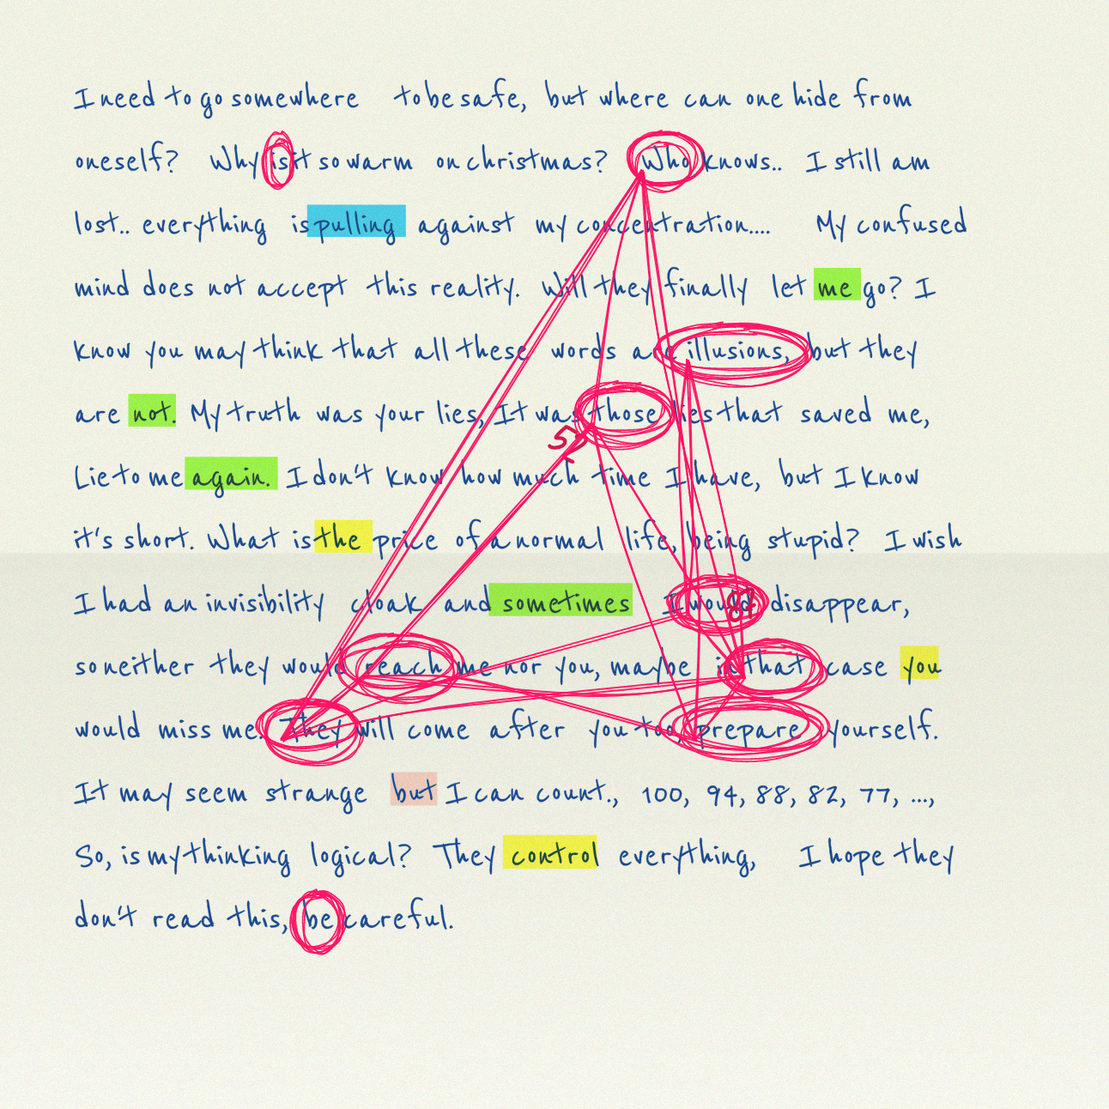 I need to go somewhere to be safe, but where can one hide from
oneself? Why is it so warm on christmas? Who knows.. I still am
lost.. everything is pulling against my concentration.... My confused
mind does not accept this reality. Will they finally let me go? I
know you may think that all these words are illusions, but they
are not. My truth was your lies, It was those lies that saved me,
Lie to me again. I don't know how much time I have, but I know
it's short. What is the price of a normal life, being stupid? I wish
I had an invisibility cloak and sometimes I would disappear,
so neither they would reach me nor you, maybe in that case you
would miss me. They will come after you too, prepare yourself.
It may seem strange but I can count., 100, 94, 88, 82, 77, ...,
So, is my thinking logical? They control everything, I hope they
don't read this, be careful.